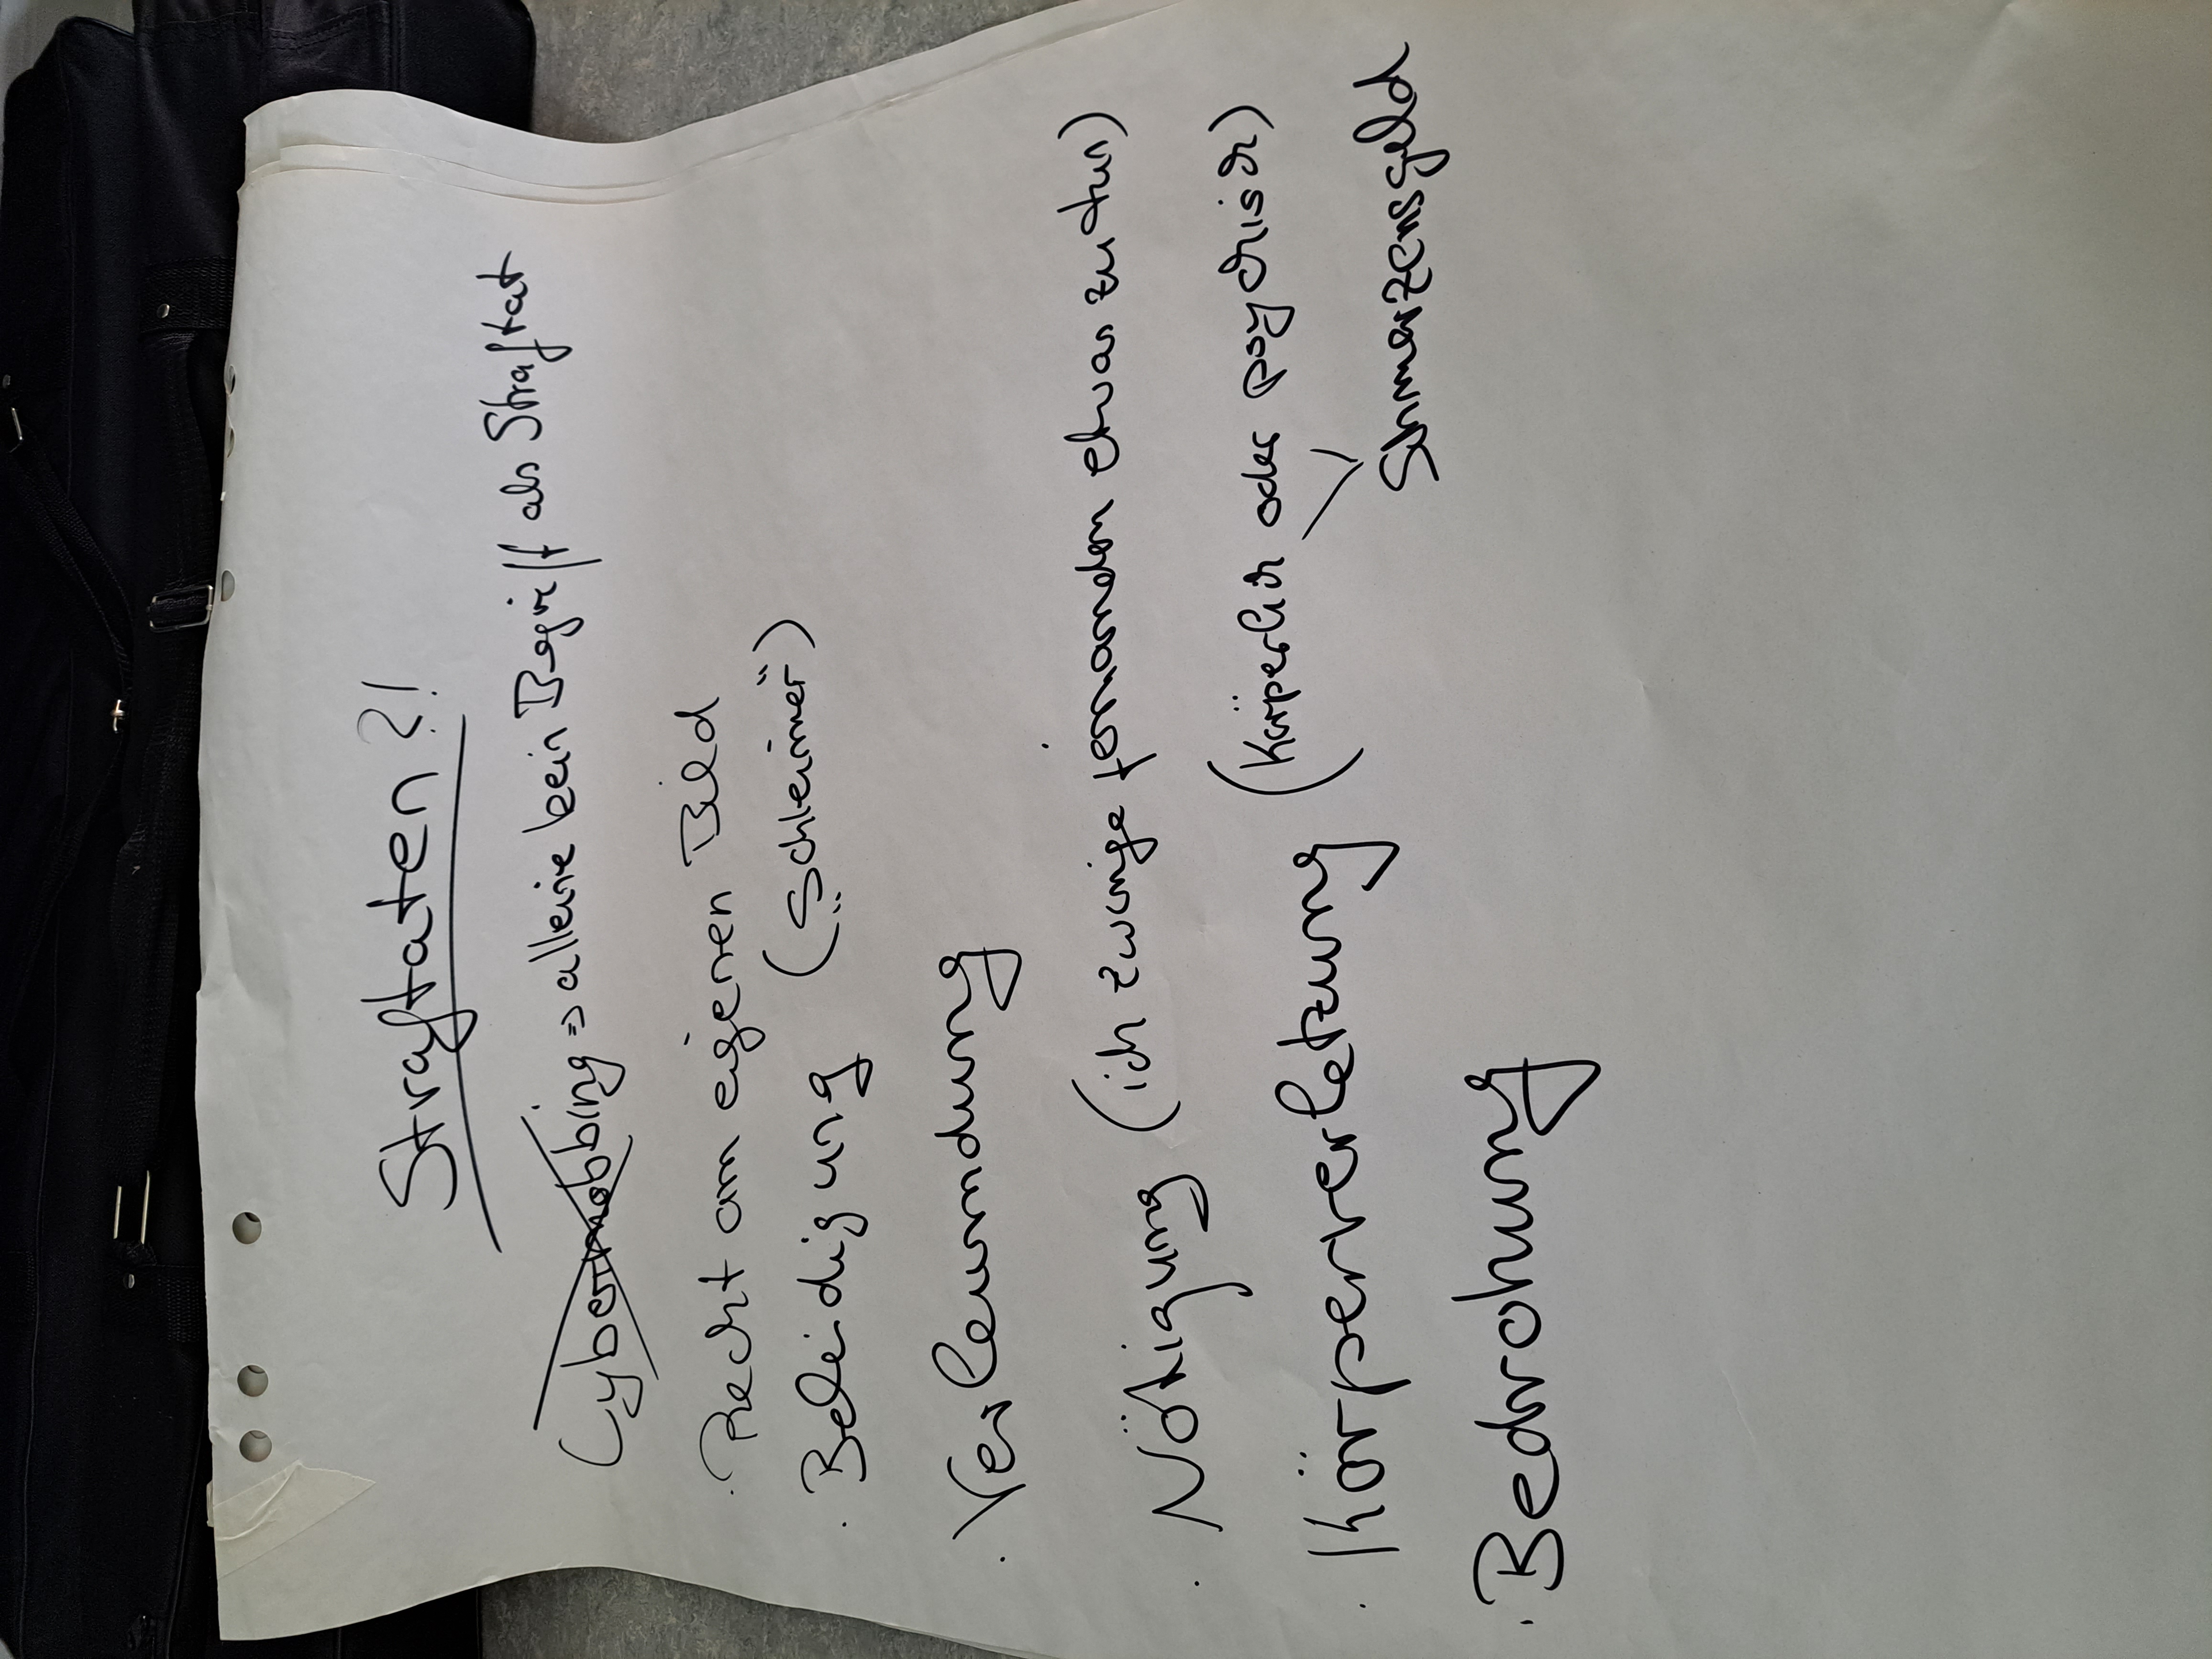 Straftaten ?!
Cybermobbing => alleine kein Begriff als Straftat
· Recht am eigenen Bild
· Beleidigung („Schleimer")
· Verleumdung
· Nötigung (ich zwinge jemanden etwas zu tun)
· Körperverletzung (körperlich oder psychisch)
Schmerzensgeld
· Bedrohung